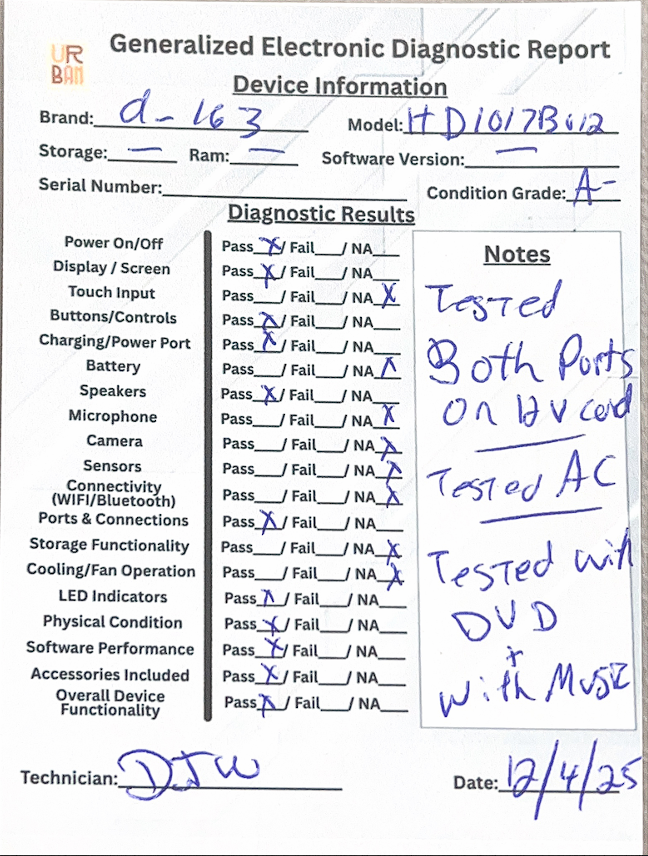 UR
BAN
Generalized Electronic Diagnostic Report
Device Information
Brand: d-163 Model: HD1017B012
Storage: — Ram: — Software Version: —
Serial Number: Condition Grade: A-
Diagnostic Results
Power On/Off Pass X / Fail / NA
Display / Screen Pass X / Fail / NA
Touch Input Pass / Fail / NA X
Buttons/Controls Pass X / Fail / NA
Charging/Power Port Pass X / Fail / NA
Battery Pass / Fail / NA X
Speakers Pass X / Fail / NA
Microphone Pass / Fail / NA X
Camera Pass / Fail / NA X
Sensors Pass / Fail / NA X
Connectivity
(WIFI/Bluetooth) Pass / Fail / NA X
Ports & Connections Pass X / Fail / NA
Storage Functionality Pass / Fail / NA X
Cooling/Fan Operation Pass / Fail / NA X
LED Indicators Pass X / Fail / NA
Physical Condition Pass X / Fail / NA
Software Performance Pass X / Fail / NA
Accessories Included Pass X / Fail / NA
Overall Device
Functionality Pass X / Fail / NA
Notes
Tested
Both Ports
On 12V cord
Tested AC
Tested with
DVD
+
with Music
Technician: DJW Date: 12/4/25